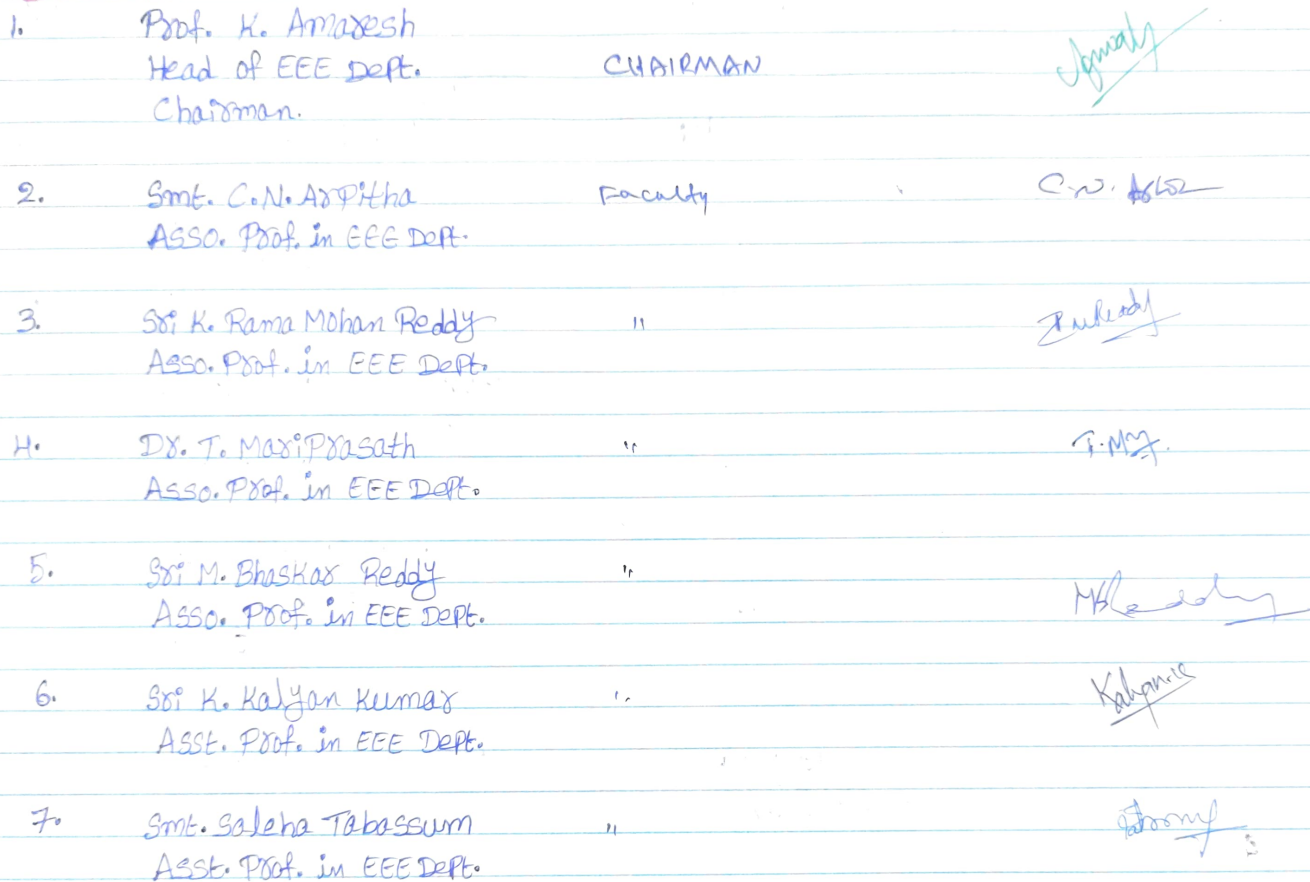 1. Prof. K. Amaresh
Head of EEE Dept. CHAIRMAN
Chairman.
2. Smt. C.N. Arpitha Faculty
Asso. Prof. in EEE Dept.
3. Sri K. Rama Mohan Reddy "
Asso. Prof. in EEE Dept.
4. Dr. T. Mariprasath "
Asso. Prof. in EEE Dept.
5. Sri M. Bhaskar Reddy "
Asso. Prof. in EEE Dept.
MBReddy
6. Sri K. Kalyan Kumar "
Asst. Prof. in EEE Dept.
7. Smt. Saleha Tabassum "
Asst. Prof. in EEE Dept.